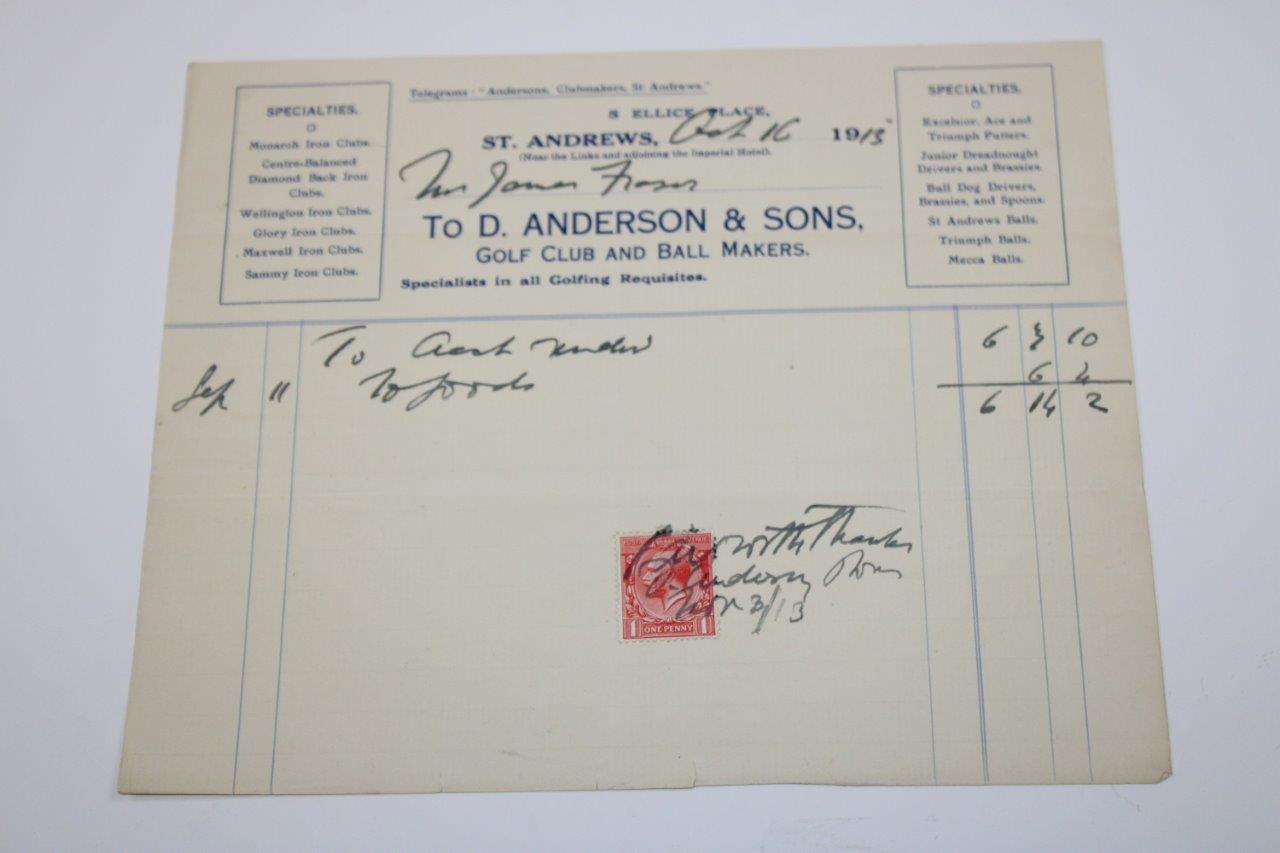 SPECIALTIES.
Monarch Iron Clubs.
Centre-Balanced
Diamond Back Iron
Clubs.
Wellington Iron Clubs.
Glory Iron Clubs.
Maxwell Iron Clubs.
Sammy Iron Clubs.
Telegrams: "Andersons, Clubmakers, St Andrews."
5 ELLICE PLACE,
ST. ANDREWS, Oct 16 1913
(Near the Links and adjoining the Imperial Hotel).
Mr James Fraser
To D. ANDERSON & SONS,
GOLF CLUB AND BALL MAKERS.
Specialists in all Golfing Requisites.
SPECIALTIES.
Excelsior, Ace and
Triumph Putters.
Junior Dreadnought
Drivers and Brassies.
Bull Dog Drivers,
Brassies, and Spoons.
St Andrews Balls.
Triumph Balls.
Mecca Balls.
To Acct 6 10
Sep 11 To goods 6 4
6 14 2
with Thanks
Anderson Sons
Nov 3/13
1 ONE PENNY 1